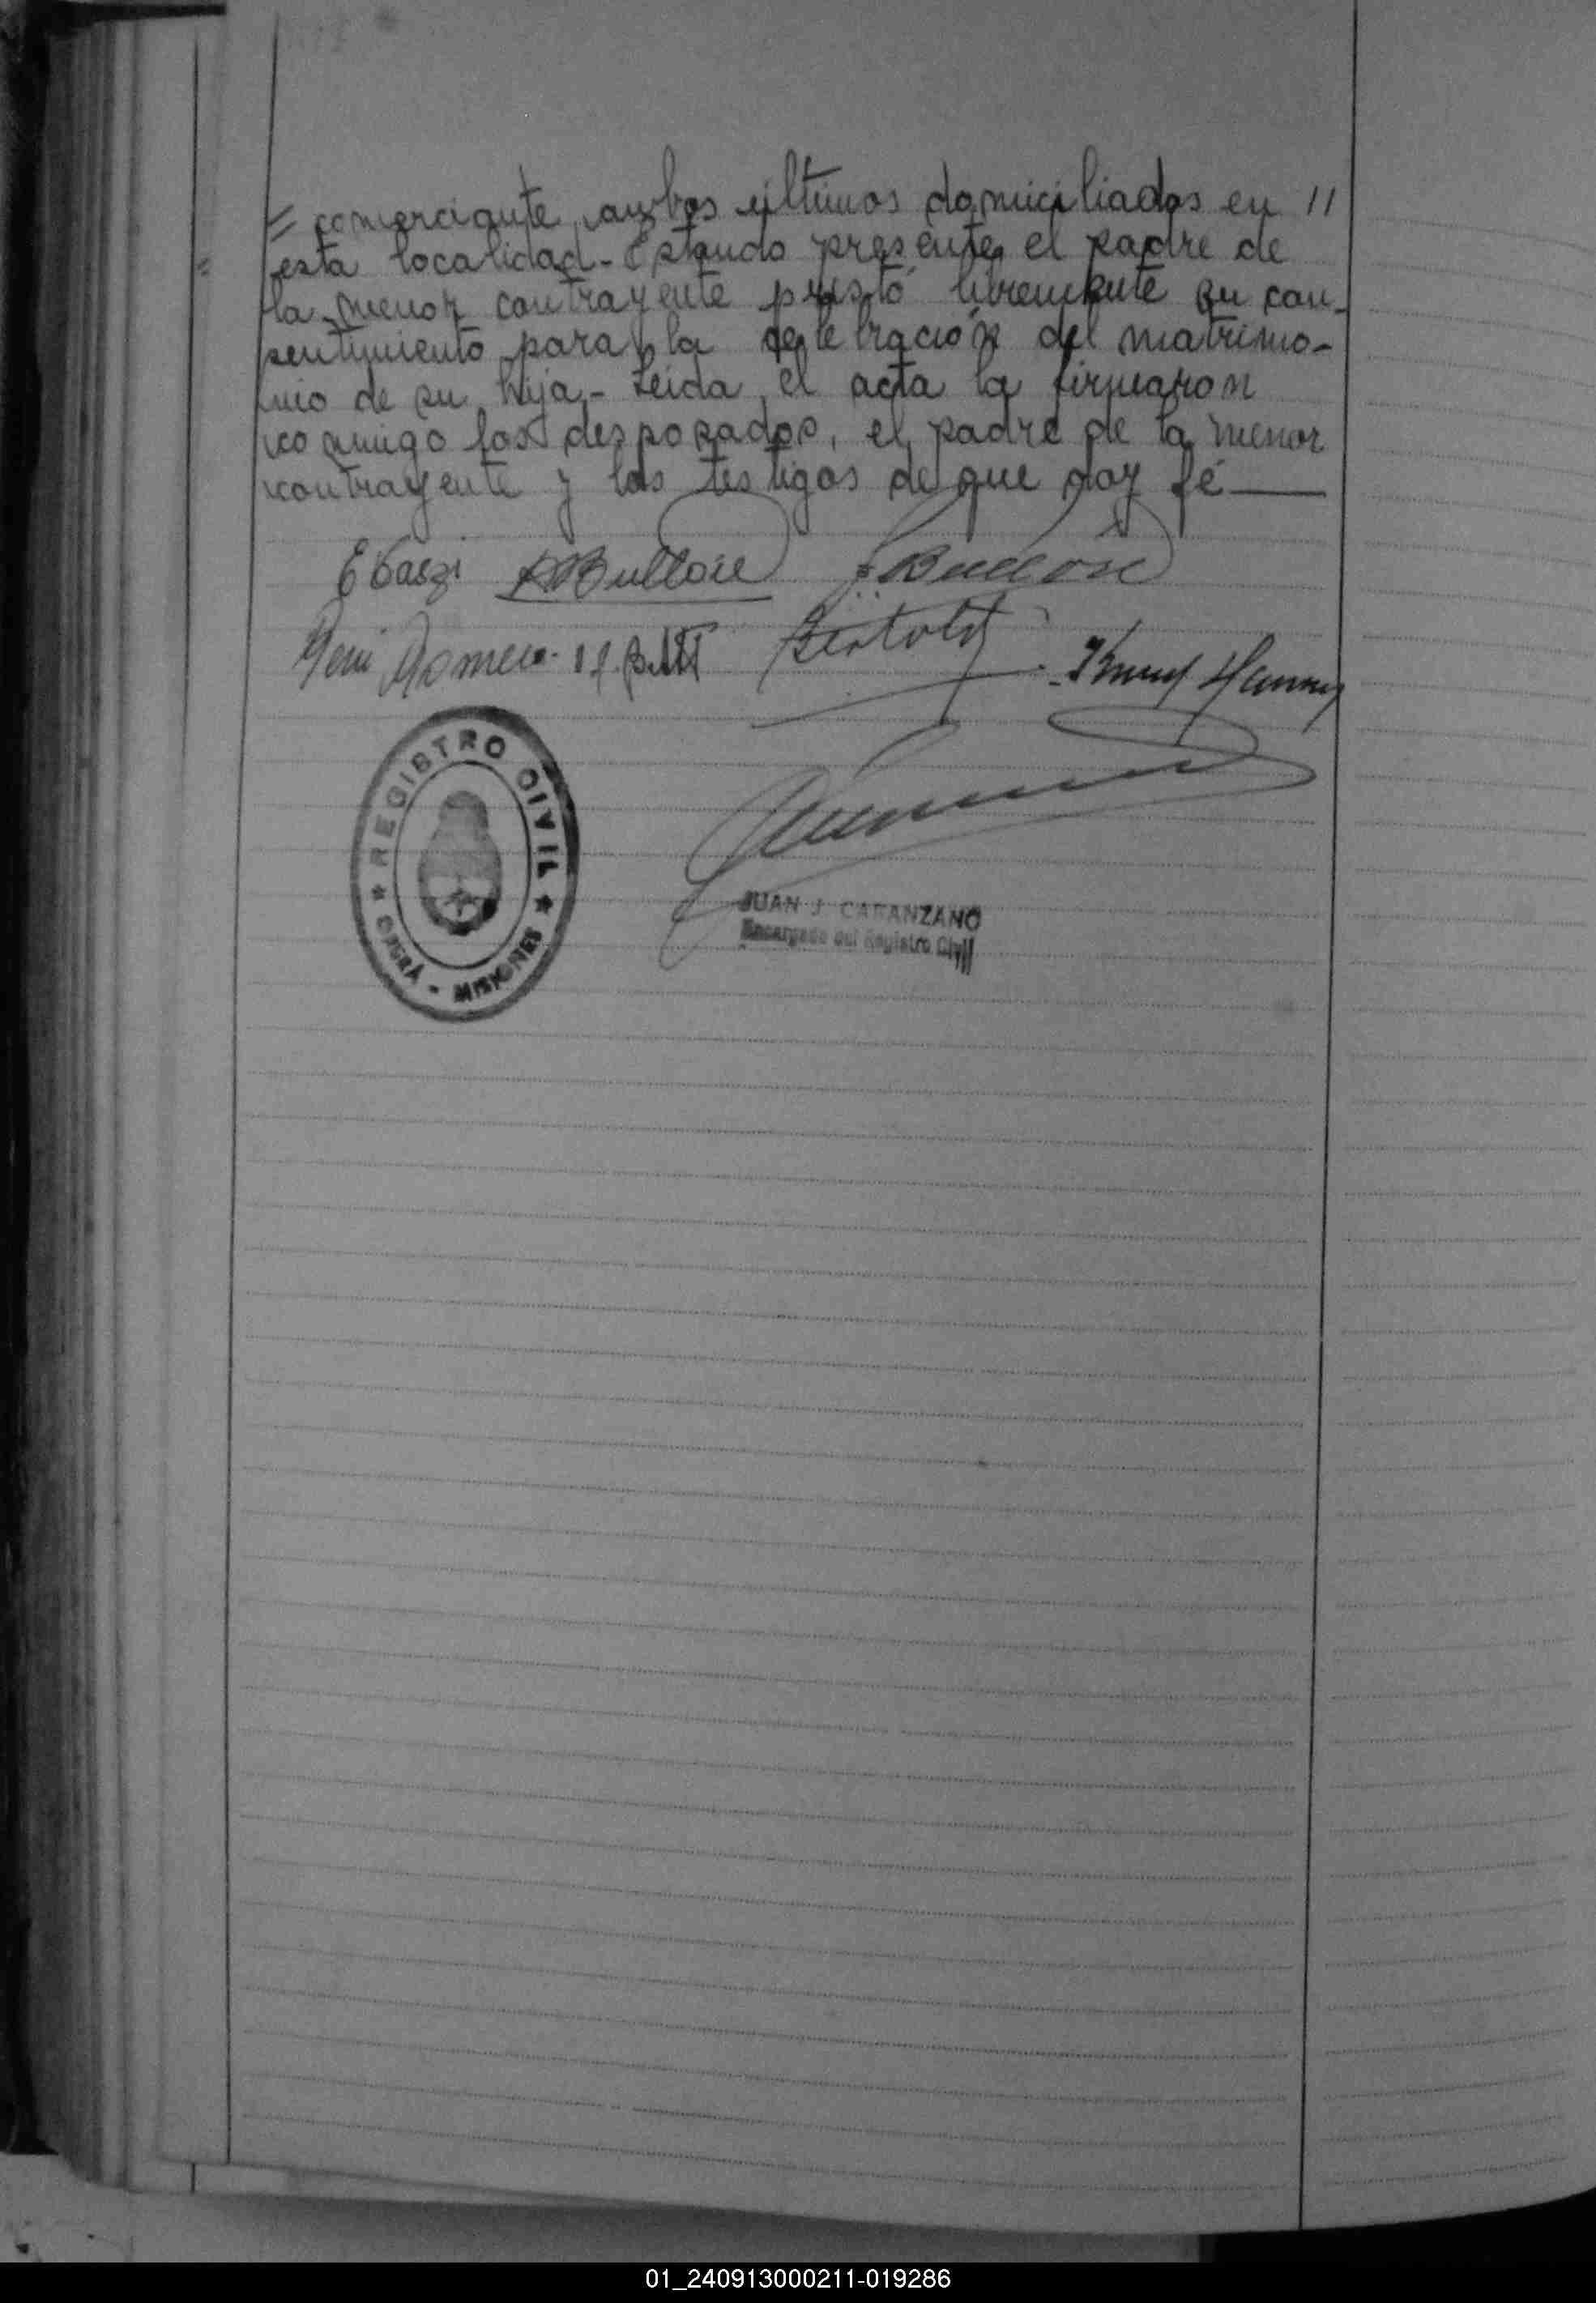 = comerciante, ambos últimos domiciliados en //
esta localidad - Estando presente el padre de
la menor contrayente prestó libremente su con-
sentimiento para la celebración del matrimo-
nio de su hija - Leida el acta la firmaron
conmigo los desposados, el padre de la menor
contrayente y los testigos de que doy fé —
REGISTRO CIVIL
OBERÁ - MISIONES
JUAN J. CARANZANO
Encargado del Registro Civil
01_240913000211-019286